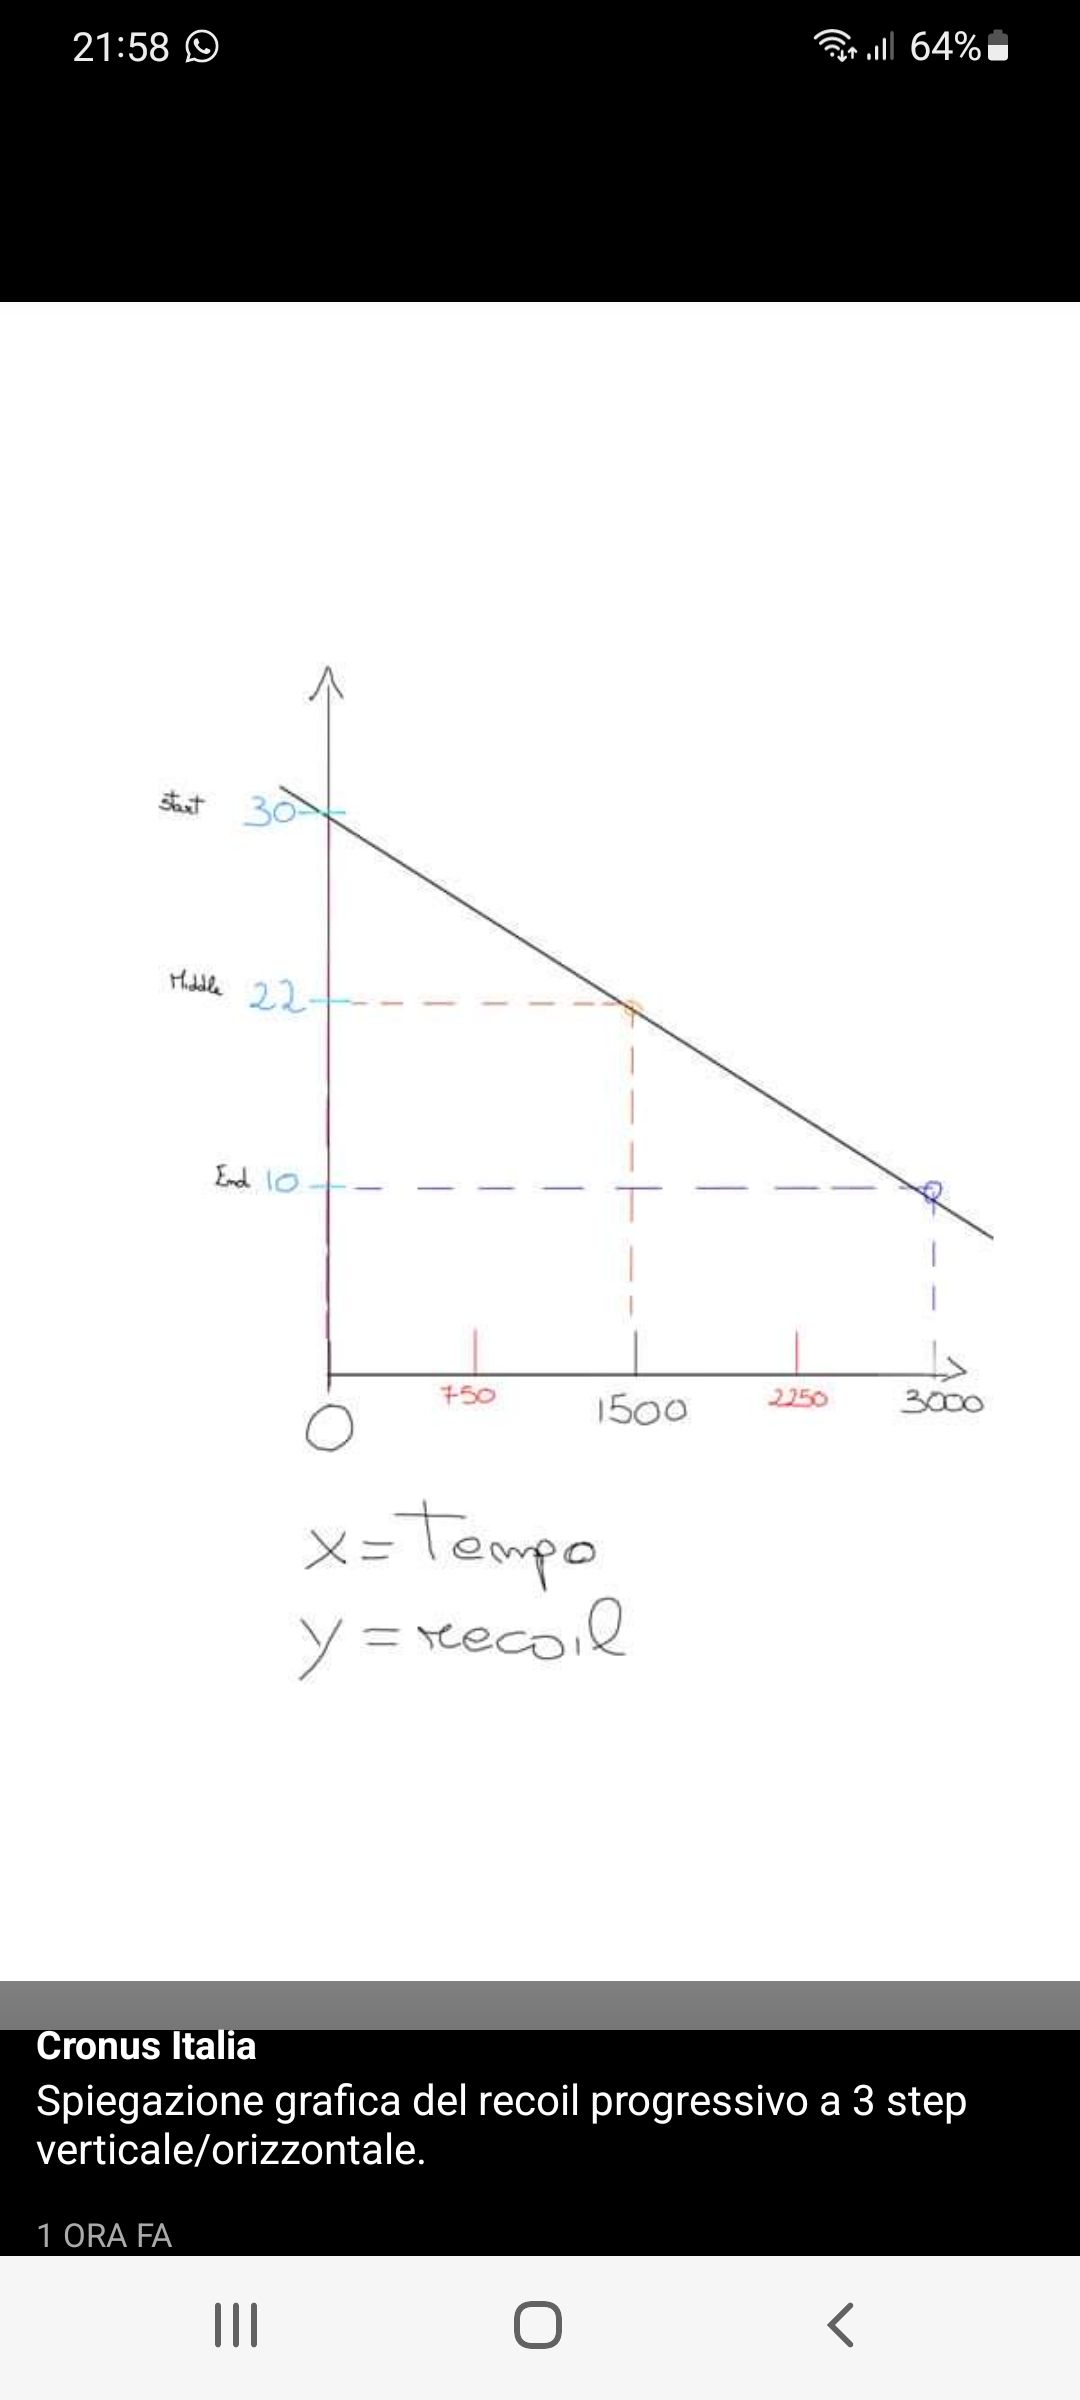 21:58 64%
Start 30
Middle 22
End 10
750 1500 2250 3000
0
x=Tempo
y=recoil
Cronus Italia
Spiegazione grafica del recoil progressivo a 3 step
verticale/orizzontale.
1 ORA FA